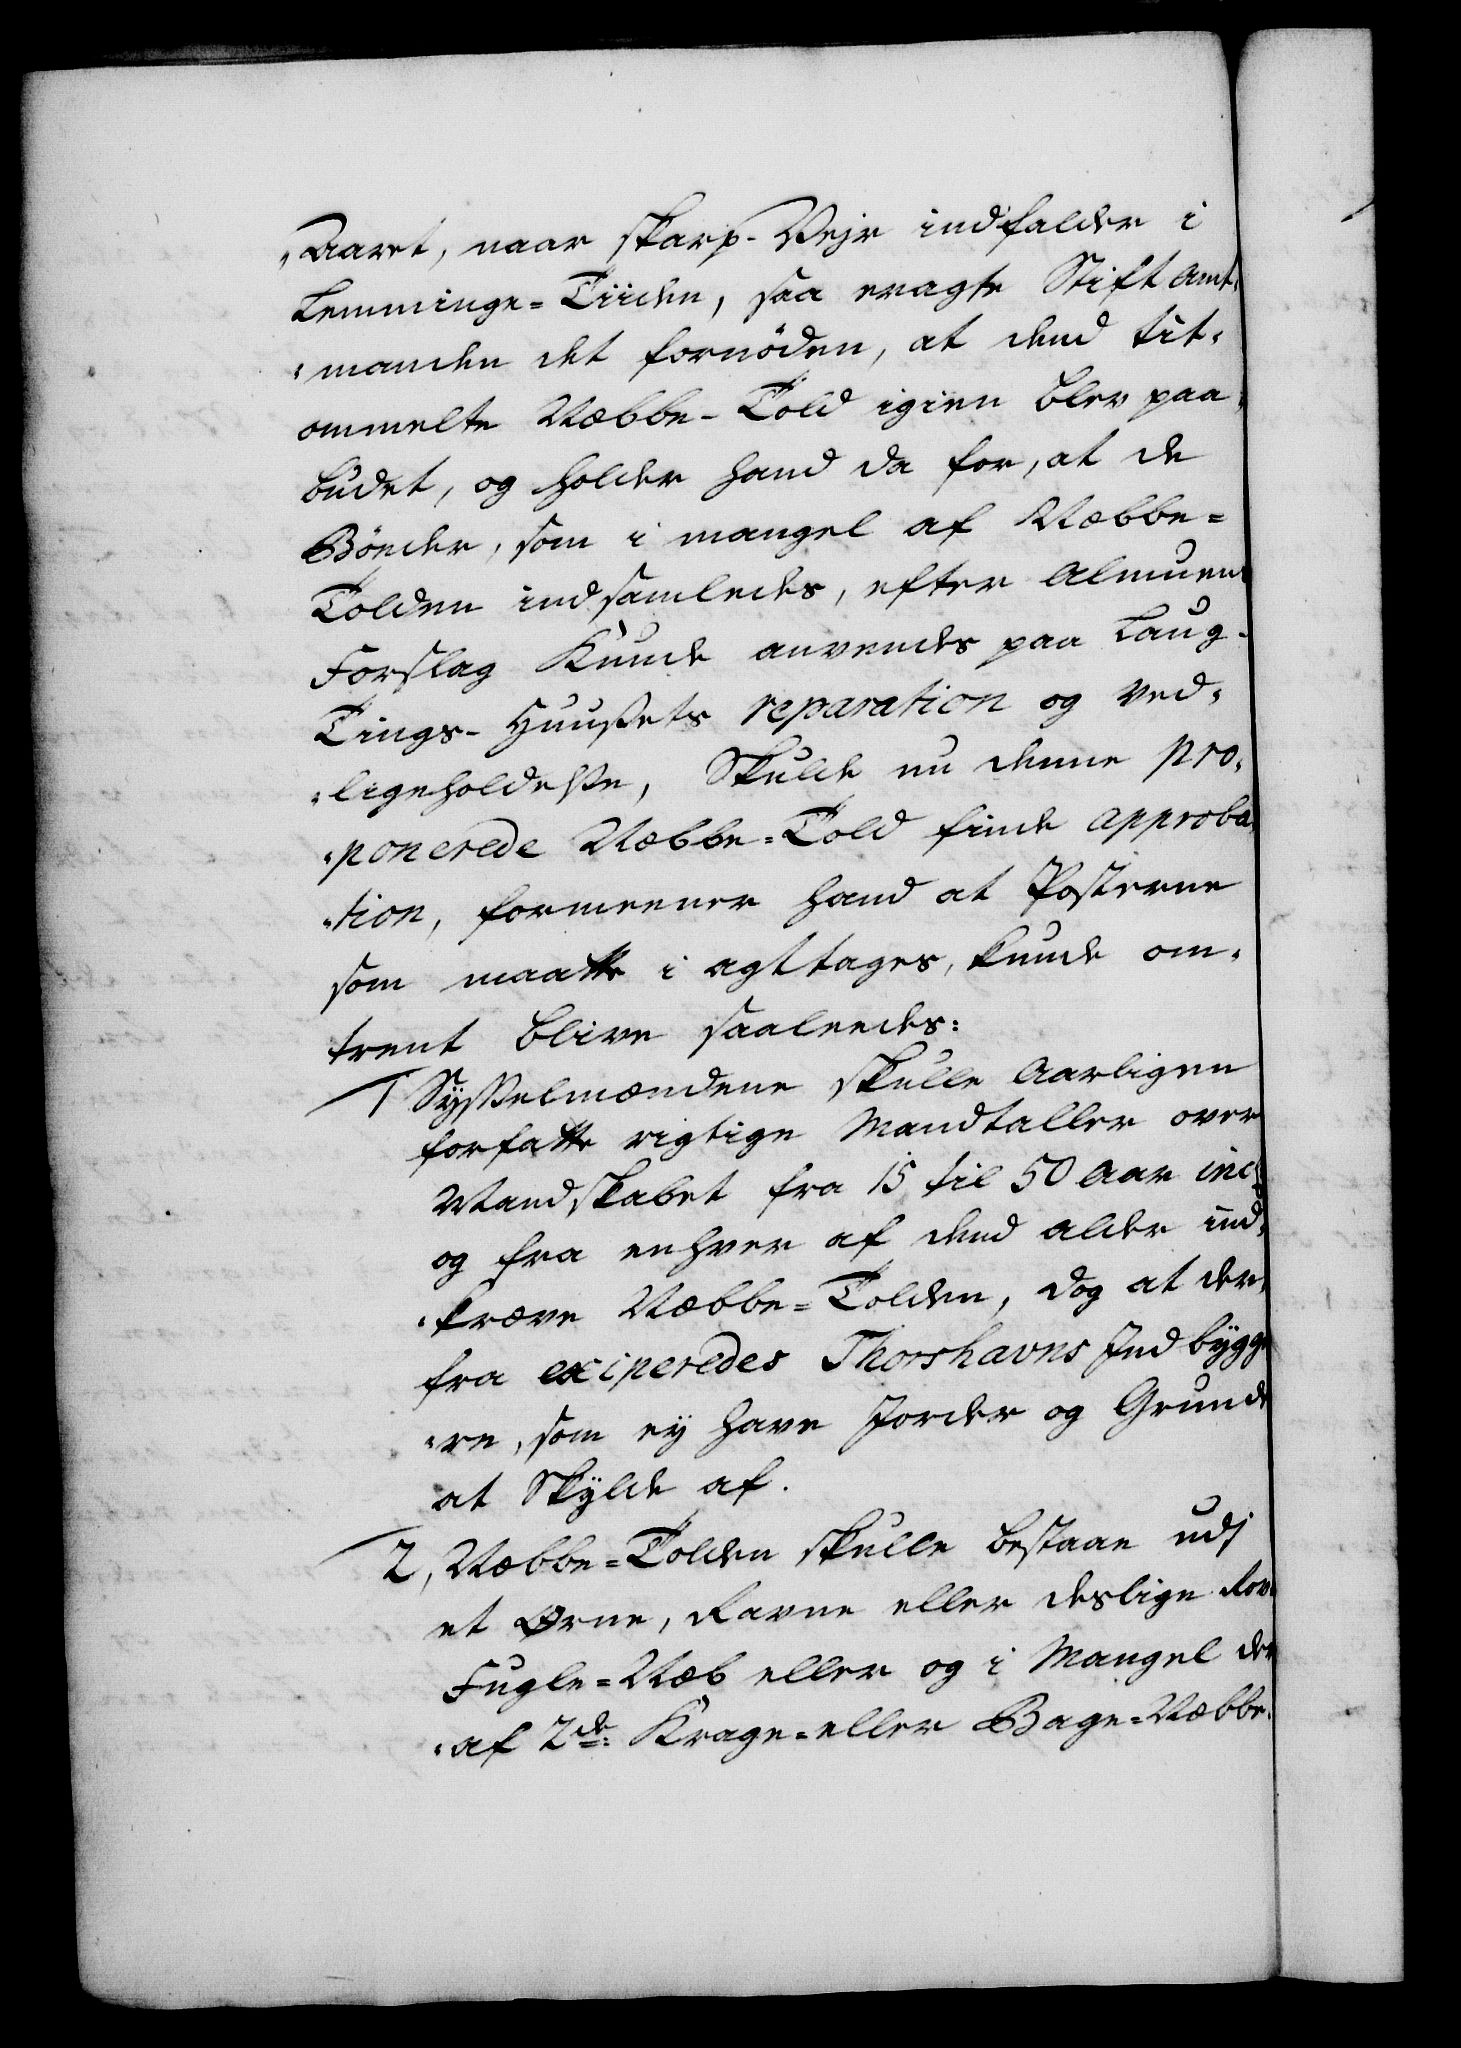 „Aaret, naar skarp-Vejr indfalder i
Lemminge=Tiiden, saa eragte Stift Amt„
„manden det fornöden, at dend tit„
ommelte Næbbe-Told igien blev paa„
budet, og holder hand da for, at de
Bönder, som i mangel af Næbbe=
Tolden indsamledes, efter Almuens
Forslag Kunde anvendes paa Laug-
Tings-Huusets reparation og Ved„
„ligeholdelse, Skulde nu denne pro„
„ponerede Næbbe=Told finde approba„
„tion, formeener hand at Posterne
som maatte i agttages, kunde om„
trent blive saaledes:
1 Sysselmændene skulle Aarligen
forfatte rigtige Mandtaller over
Mandskabet fra 15 til 50 Aar incl
og fra enhver af dend alder ind„
„kræve Næbbe=Tolden, dog at der„
fra exciperedes Thorshavns Indbygge
„re, som ey have Jorder og Grunde
at Skylde af.
2, Næbbe=Tolden skulle bestaae udj
et Ørne, Ravne eller deslige Rov„
Fugle=Næb eller og i Mangel der
„af 2de: Krage=eller Bage=Næbbe.